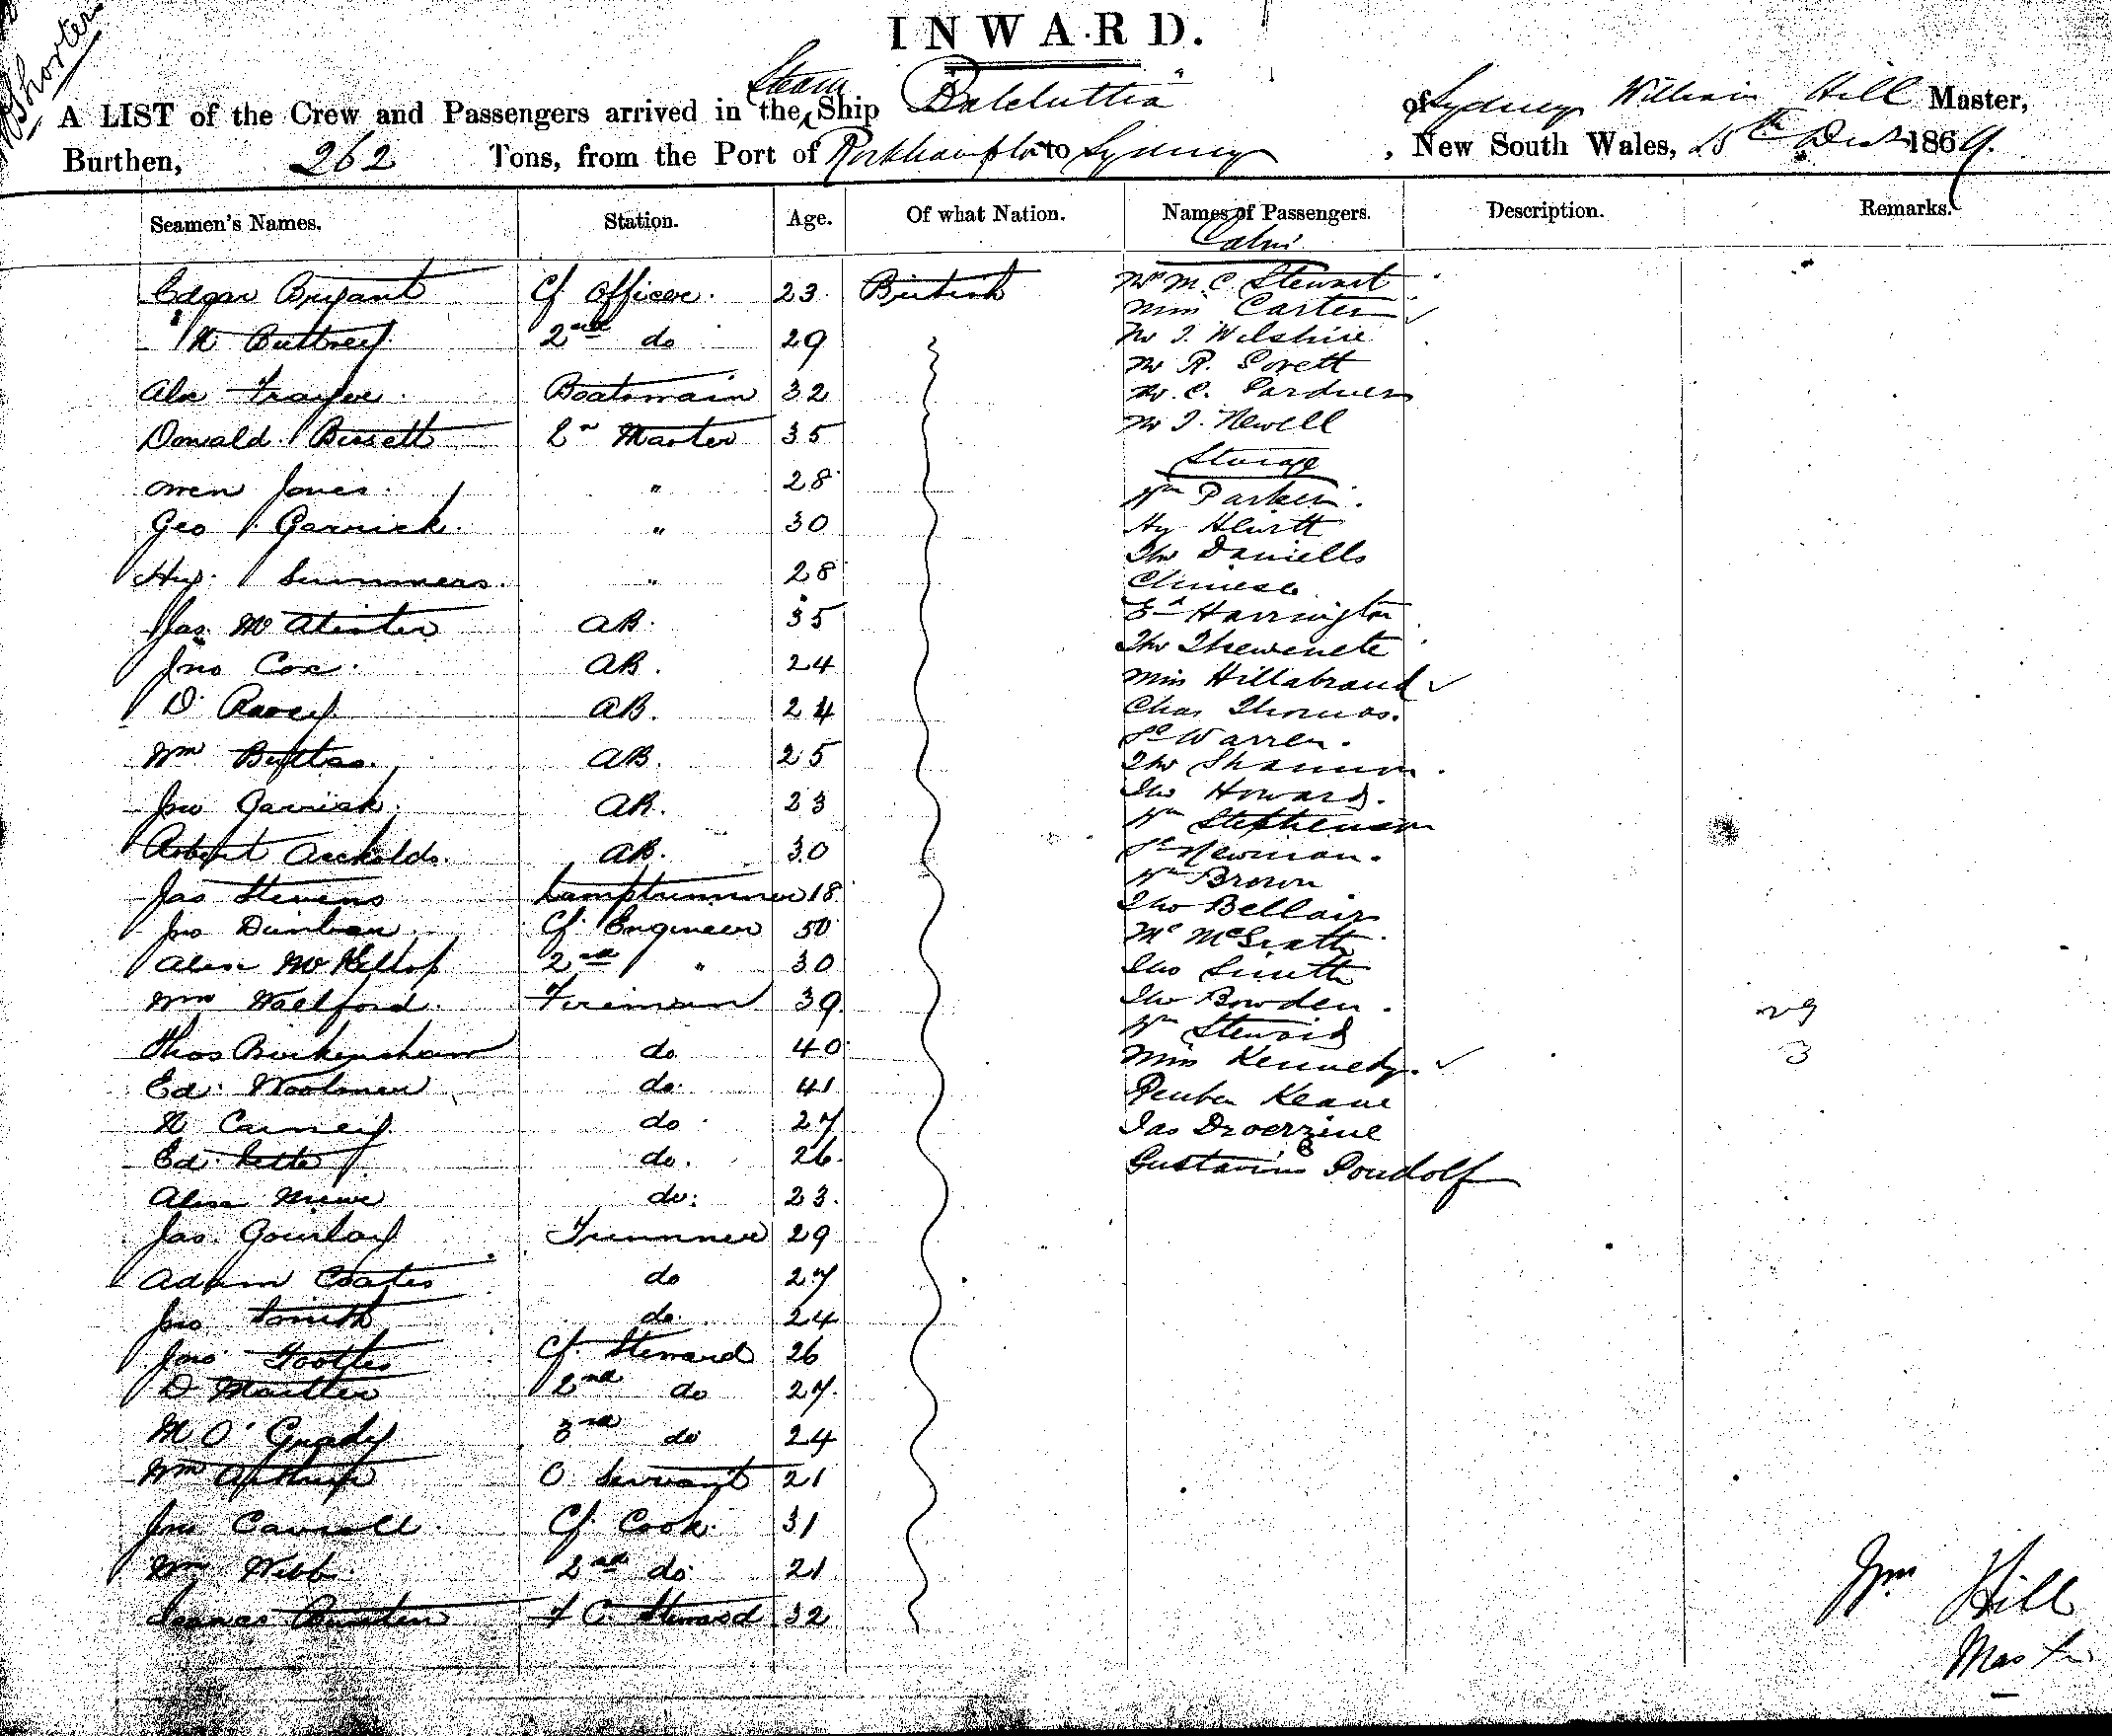 Shorter
INWARD.
A LIST of the Crew and Passengers arrived in the Steam Ship "Balclutha" of Sydney William Hill Master,
Burthen, 262 Tons, from the Port of Rockhampton to Sydney, New South Wales, 25th Decr 1869.
Seamen's Names. Station. Age. Of what Nation. Names of Passengers. Description. Remarks.
Cabin
Edgar Bryant Cf Officer. 23 British
Mr M. C. Stewart
Miss Carter
N Buttrey 2nd do 29
Mr J. Wilshire
Mr R. Lovett
Alex Frayer Boatswain 32
Mr C. Gardner
Donald Bissett 2r Master 35
Mr J. Newell
Sterage
Owen Jones " 28
Wm Parker
Geo Garrick " 30
Hy Hewitt
Tho Daniells
Hy Summers " 28
Chinese
Jas McAlister AB. 35
Ed Harrington
Jno Cox AB. 24
Miss Hillabrand
D. AB. 24
Chas Thomas.
Warren.
Wm AB. 25
Tho Shannon
Jno Garrick AB. 23
Tho Howard.
Wm Stephenson
Robert AB. 30
Newman.
Jas Stevens Lamptrimmer 18
Wm Brown
Jno Dunbar Cf. Engineer 50
Tho Bellair
Mc McGrath
Alex McKellop 2nd " 30
Tho Smith
Wm Wallford Fireman 39
Tho Bowden
29
Wm Steward
Thos Birkensham do 40
Miss Kennedy
3
Ed. Woolmer do. 41
Reuben Keane
N Carney do 27
Jas
Ed. do. 26
Gustavus B Goudolf
Alex do. 23
Jas. Gourlay Trimmer 29
Adam Coates do 27
Jno Smith do. 24
Jno Cf. Steward 26
D 2nd do 27
M O'Grady 3rd do 24
Wm Arthur O Servant 21
Jno Carroll Cf. Cook 31
Wm Webb 2nd do. 21
F C Steward 32
Wm Hill
Master